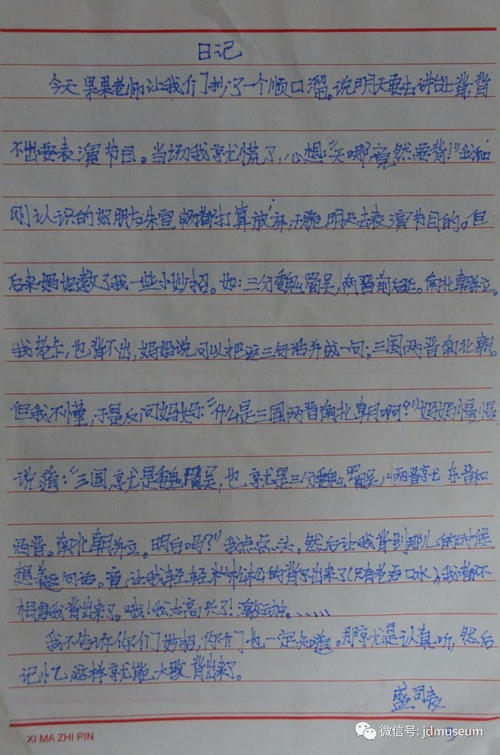 日记
今天果果老师让我们抄了一个顺口溜。说明天要去讲台上背,背
不出要表演节目。当场我就慌了,心想:"天哪竟然要背!"我和
刚认识的好朋友朱宣 都打算放弃,干脆明天去表演节目的。但
后来妈妈教了我一些小妙招。如:三分魏蜀吴,两晋前后延。南北朝并立。
我老卡,也背不出,妈妈说可以把这三句话并成一句:三国两晋南北朝。
但我不懂,于是反问妈妈:"什么是三国两晋南北朝啊?"妈妈慢慢
说道:"三国,就是魏蜀吴,也就是三分魏蜀吴,两晋就 东晋和
西晋。南北朝并立。明白吗?"我点点头。然后让我背到那儿的时候
想着这句话。竟让我轻轻松松的背了出来了(只有老吞口水),我都不
相信我背出来了。啦!我太高兴了!激动地......
我不告诉你们妙招,你们也一定知道。那就是认真听,然后
记忆这样就能大致背出来了。
盛
XI MA ZHI PIN
微信号: jdmuseum